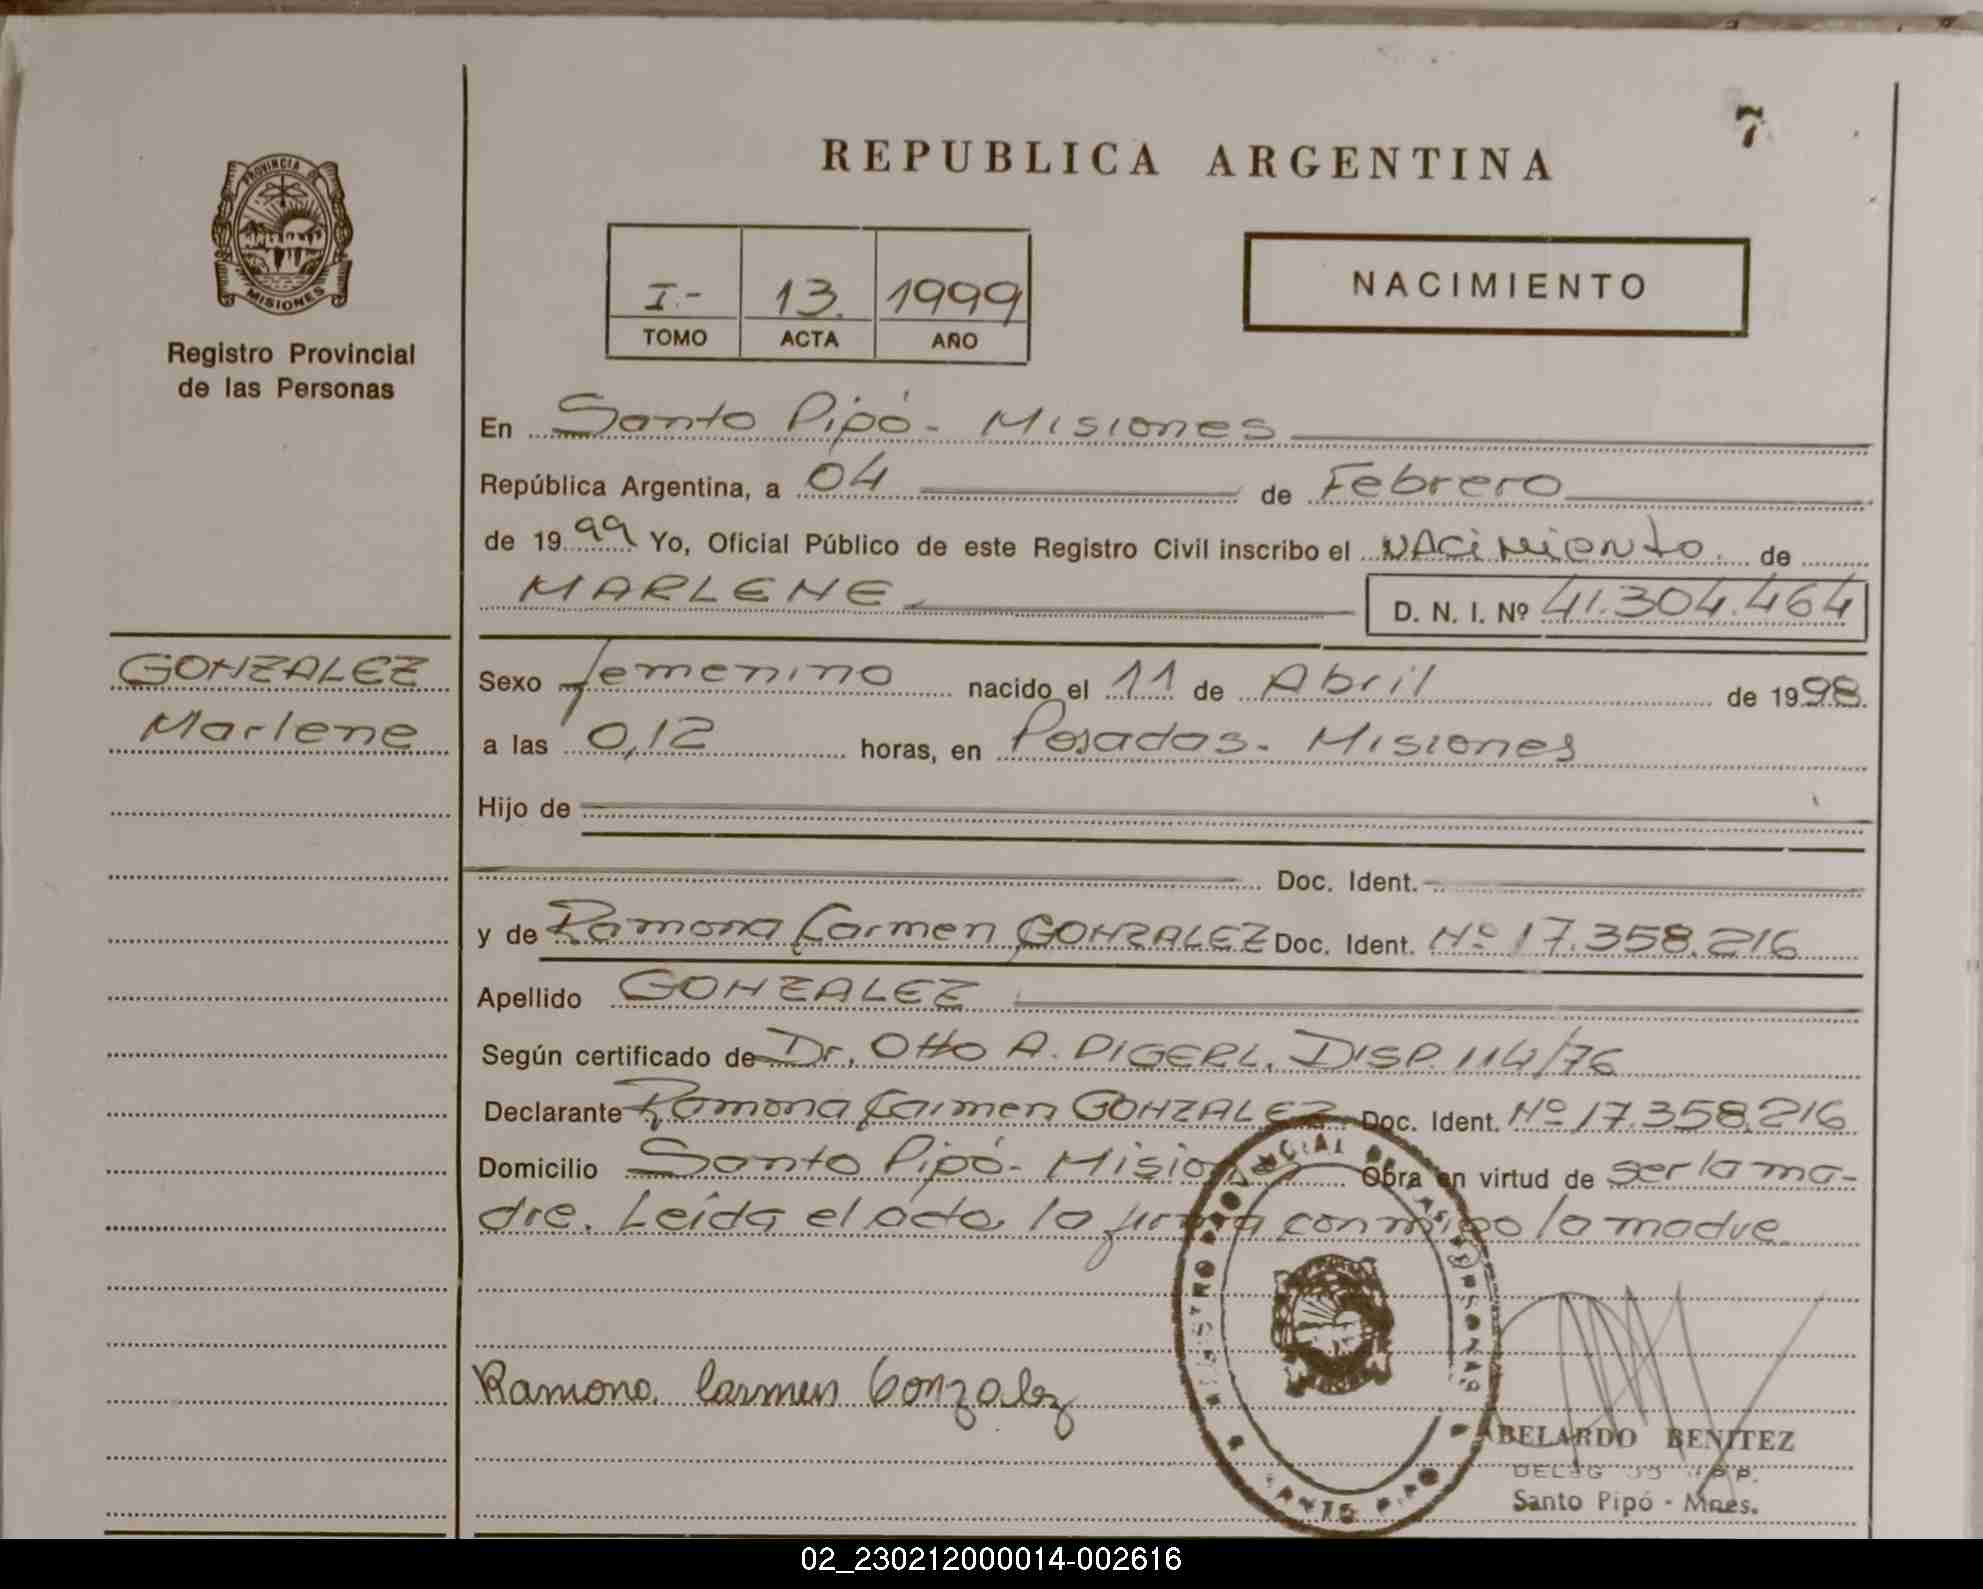 7
REPUBLICA ARGENTINA
PROVINCIA DE
MISIONES
Registro Provincial
de las Personas
I.- 13. 1999
TOMO ACTA AÑO
NACIMIENTO
En Santo Pipó - Misiones
República Argentina, a 04 de Febrero
de 1999 Yo, Oficial Público de este Registro Civil inscribo el NACimiento de
MARLENE D. N. I. Nº 41.304.464
GONZALEZ
Marlene
Sexo femenino nacido el 11 de Abril de 1998.
a las 0,12 horas, en Posadas - Misiones
Hijo de
Doc. Ident.
y de Ramona Carmen GONZALEZ Doc. Ident. Nº 17.358.216
Apellido GONZALEZ
Según certificado de Dr. Otto A. DIGERL. DISP. 114/76
Declarante Ramona Carmen GONZALEZ Doc. Ident. Nº 17.358.216
Domicilio Santo Pipó - Misiones Obra en virtud de ser la ma-
dre. Leída el acta, la firma conmigo la madre.
REGISTRO PROVINCIAL DE LAS PERSONAS
SANTO PIPO
Ramona Carmen Gonzalez
ABELARDO BENITEZ
Santo Pipó - Mnes.
02_230212000014-002616